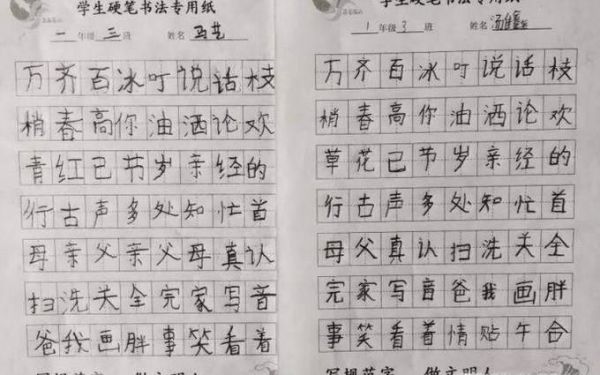 学生硬笔书法专用纸
一年级三班 姓名
万齐百冰叮说话枝
梢春高你油洒论欢
青红已节岁亲经的
行古声多处知忙首
母亲父亲父母真认
扫洗关全完家写音
爸我画胖事笑看着
学生硬笔书法专用纸
1年级3班 姓名
万齐百冰叮说话枝
梢春高你油洒论欢
草花已节岁亲经的
行古声多处知忙首
母父真认扫洗关全
完家写音爸我画胖
事笑看着情贴午合